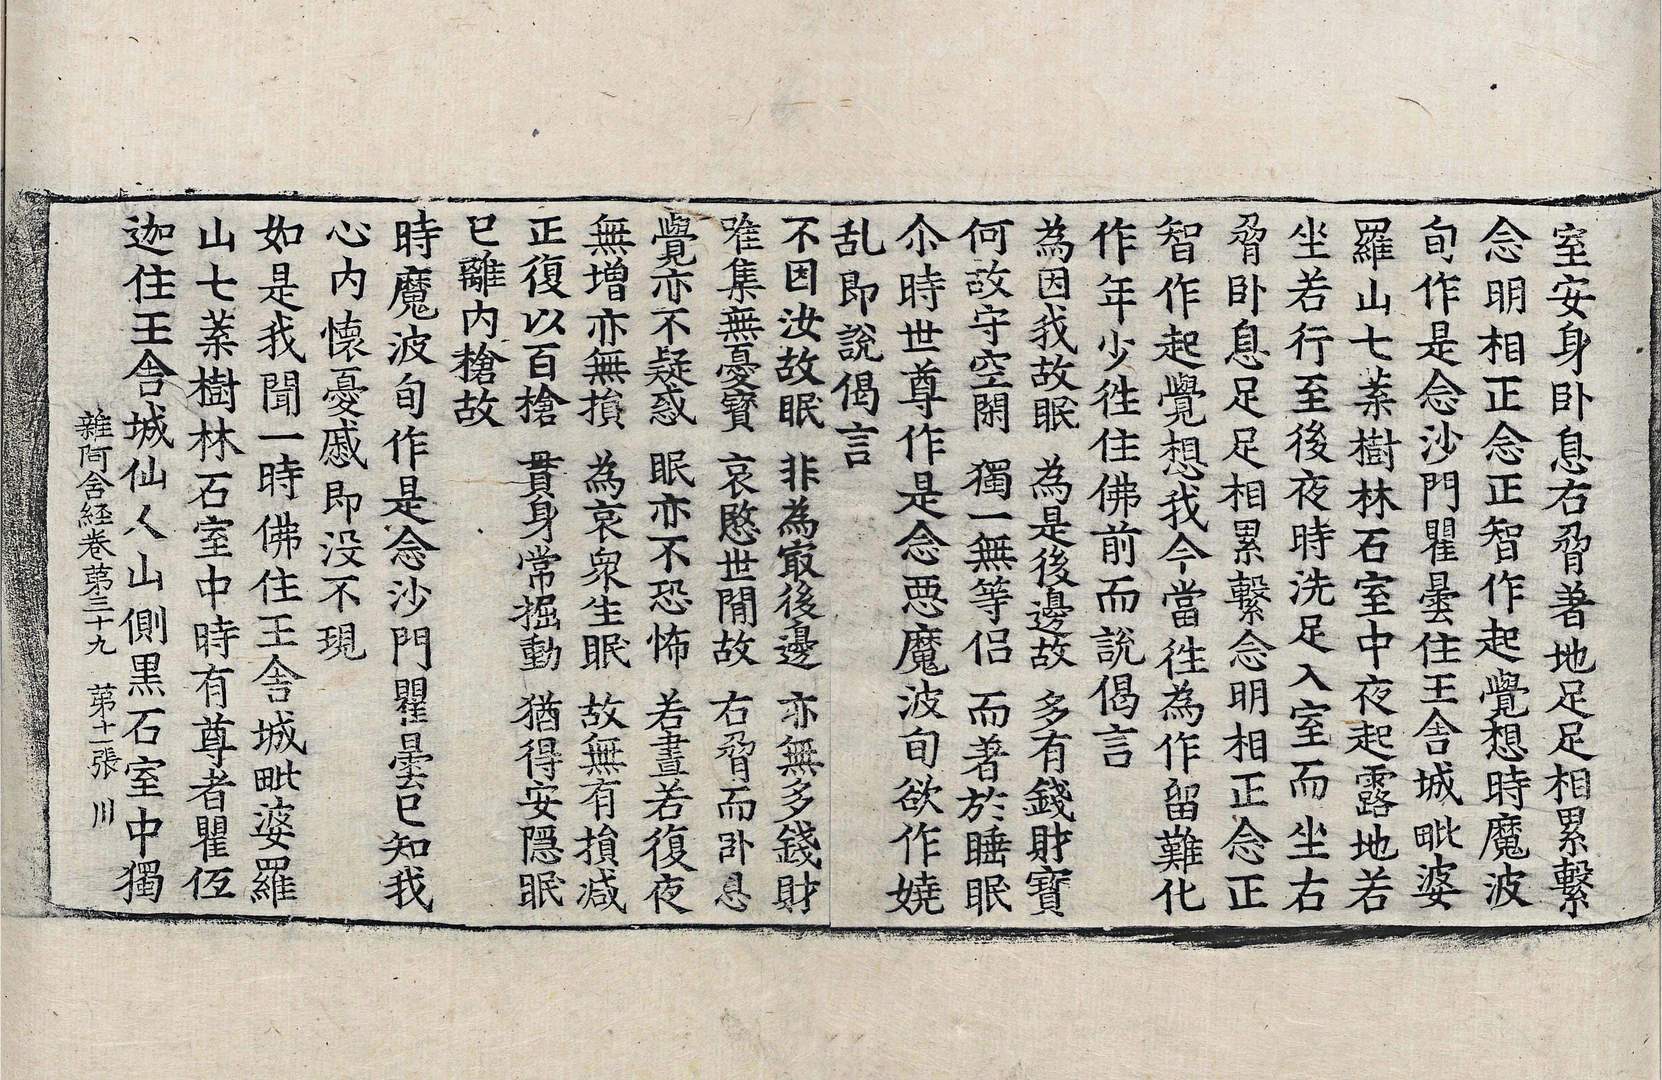 室安身卧息右脅著地足足相累繫
念明相正念正智作起覺想時魔波
旬作是念沙門瞿曇住王舍城毗婆
羅山七葉樹林石室中夜起露地若
坐若行至後夜時洗足入室而坐右
脅卧息足足相累繫念明相正念正
智作起覺想我今當徃為作留難化
作年少徃住佛前而說偈言
為因我故眠　為是後邊故　多有錢財寶
何故守空閑　獨一無等侣　而著於睡眠
尒時世尊作是念惡魔波旬欲作嬈
乱即說偈言
不因汝故眠　非為㝡後邊　亦無多錢財
唯集無憂寶　哀愍世間故　右脅而卧息
覺亦不疑惑　眠亦不恐怖　若晝若復夜
無增亦無損　為哀衆生眠　故無有損减
正復以百槍　貫身常掘動　猶得安隱眠
已離內槍故
時魔波旬作是念沙門瞿曇已知我
心内懷憂慼即没不現
如是我聞一時佛住王舍城毗婆羅
山七葉樹林石室中時有尊者瞿伍
迦住王舍城仙人山側黒石室中獨
雜阿含経卷第三十九　第十一張　川